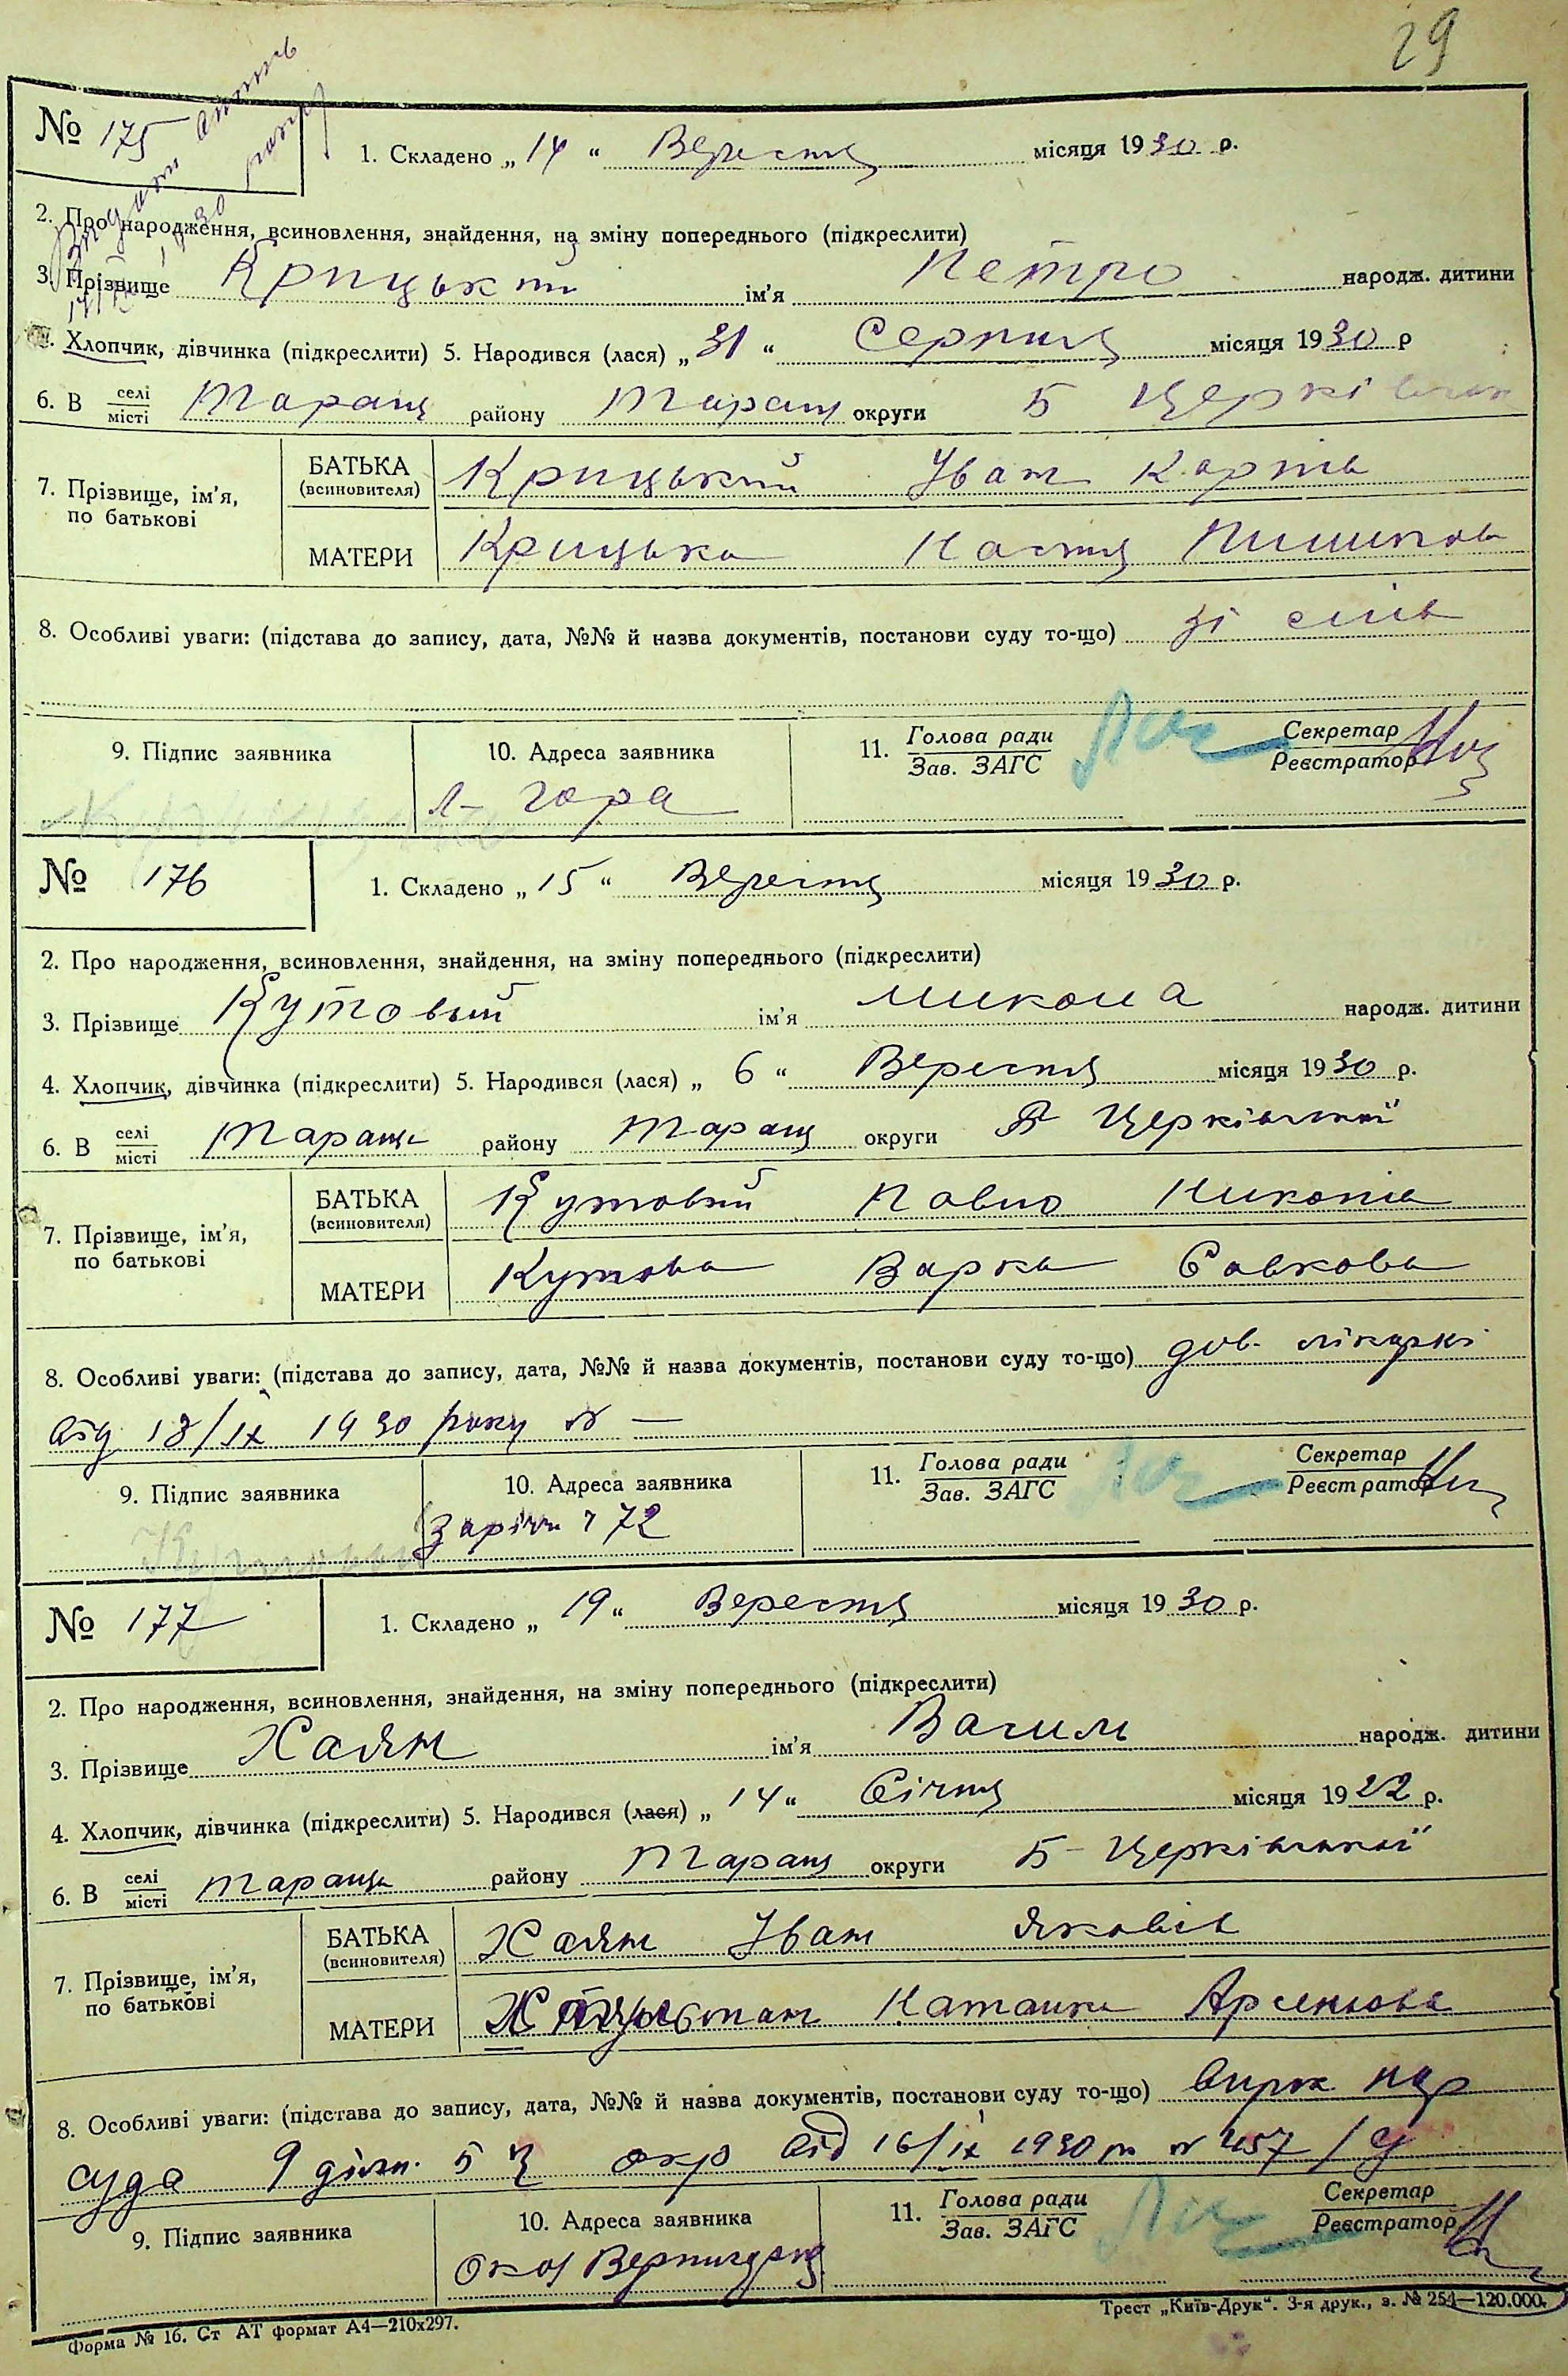 29
№ 175
1. Складено „ 14 “ Вересня місяця 1930 р.
2. Про народження, всиновлення, знайдення, на зміну попереднього (підкреслити)
3. Прізвище Крицький ім’я Петро народж. дитини
4. Хлопчик, дівчинка (підкреслити) 5. Народився (лася) „ 31 “ Серпня місяця 1930 р
6. В селі місті Тараща району Таращ округи Б Церківськ
7. Прізвище, ім’я, по батькові
БАТЬКА (всиновителя) Крицький Іван Карпів
МАТЕРИ Крицька Настя
8. Особливі уваги: (підстава до запису, дата, №№ й назва документів, постанови суду то-що) зі слів
9. Підпис заявника
10. Адреса заявника
11. Голова ради Зав. ЗАГС
Секретар Реєстратор
Л- гора
№ 176
1. Складено „ 15 “ Вересня місяця 1930 р.
2. Про народження, всиновлення, знайдення, на зміну попереднього (підкреслити)
3. Прізвище Кутовый ім’я Микола народж. дитини
4. Хлопчик, дівчинка (підкреслити) 5. Народився (лася) „ 6 “ Вересня місяця 1930 р.
6. В селі місті Тараща району Таращ округи Б Церківської
7. Прізвище, ім’я, по батькові
БАТЬКА (всиновителя) Кутовий Павло
МАТЕРИ Кутова Варка Савкова
8. Особливі уваги: (підстава до запису, дата, №№ й назва документів, постанови суду то-що) дов. лікаркі
від 13/IX 1930 року № —
9. Підпис заявника
10. Адреса заявника
11. Голова ради Зав. ЗАГС
Секретар Реєстратор
Заріччя 72
№ 177
1. Складено „ 19 “ Вересня місяця 1930 р.
2. Про народження, всиновлення, знайдення, на зміну попереднього (підкреслити)
3. Прізвище Хаян ім’я Василь народж. дитини
4. Хлопчик, дівчинка (підкреслити) 5. Народився (лася) „ 14 “ Січня місяця 1922 р.
6. В селі місті Тараща району Таращ округи Б- Церківської
7. Прізвище, ім’я, по батькові
БАТЬКА (всиновителя) Хаян Іван Яковів
МАТЕРИ Наталка Арсенова
8. Особливі уваги: (підстава до запису, дата, №№ й назва документів, постанови суду то-що) вирок нар
суда 9 дільн. Б Ц окр від 16/IX 1930 р № 457/
9. Підпис заявника
10. Адреса заявника
11. Голова ради Зав. ЗАГС
Секретар Реєстратор
Форма № 16. Ст АТ формат А4—210х297.
Трест „Київ-Друк“. 3-я друк., з. № 254—120.000.